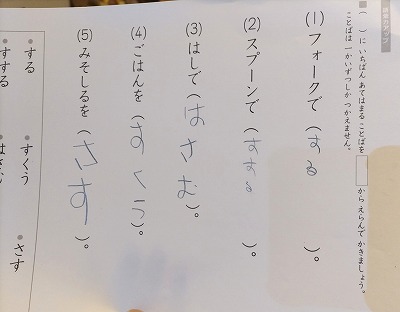 ( )に いちばん あてはまる ことばを から えらんで かきましょう。
ことばは 一かいずつしか つかえません。
(1) フォークで (する )。
(2) スプーンで (すする )。
(3) はしで (はさむ)。
(4) ごはんを (すくう)。
(5) みそしるを (さす)。
・する ・すくう ・さす
・すする